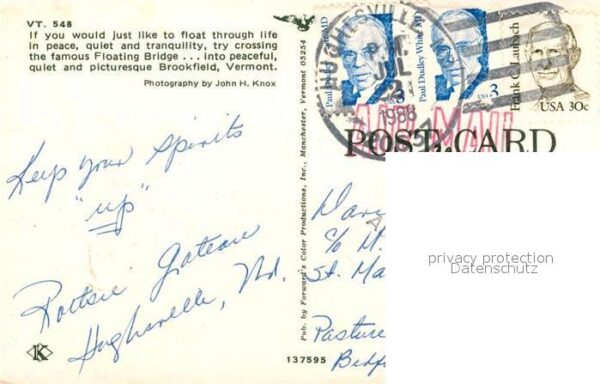 VT. 548
If you would just like to float through life
in peace, quiet and tranquility, try crossing
the famous Floating Bridge . . . into peaceful,
quiet and picturesque Brookfield, Vermont.
Photography by John H. Knox
Keep your spirits
"up"
Gateau
Md.
K
Pub. by Forward's Color Productions, Inc., Manchester, Vermont 05254
137595
Paul Dudley White MD
USA 3
Paul Dudley White MD
USA 3
Frank C. Laubach
USA 30c
HUGHESVILLE
PM
JUL
1988
AIR MAIL
POST CARD
c/o M.
St. Ma
Pasture
Bedf
privacy protection
Datenschutz